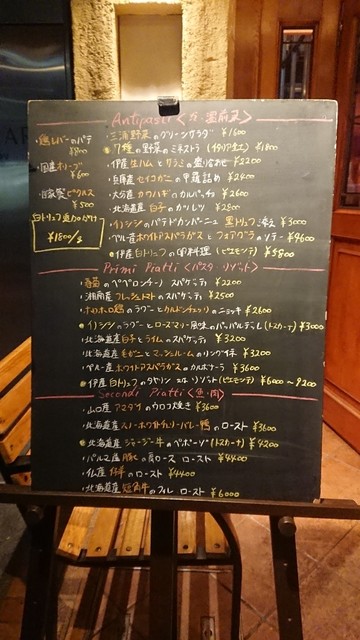 Antipasti <冷・温前菜>
・鶏レバーのパテ ¥800
・国産オリーブ ¥600
・自家製ピクルス ¥500
白トリュフ追加がけ ¥1800/g
・三浦野菜のグリーンサラダ ¥1600
・7種の野菜のミネストラ(イタリア全土) ¥1800
・伊産 生ハムとサラミの盛り合わせ ¥2200
・兵庫産 セイコガニの甲羅詰め ¥2400
・大分産 カワハギのカルパッチョ ¥2600
・北海道産 白子の ¥2700
・イノシシのパテドカンパーニュ 黒トリュフ添え ¥3000
・ペルー産ホワイトアスパラガスとフォアグラのソテー ¥4600
・伊産白トリュフの卵料理(ピエモンテ) ¥5800
Primi Piatti <パスタ・リゾット>
のペペロンチーノ スパゲッティ ¥2200
・湘南産フレッシュトマトのスパゲッティ ¥2500
・ホロホロ鶏のラグーとカルドンチェッリのニョッキ ¥2600
・イノシシのラグーとローズマリー風味のパッパルデッレ(トスカーナ) ¥3000
・北海道産白子とライムのスパゲッティ ¥3200
・北海道産毛ガニとマッシュルームのリングイネ ¥3200
・ペルー産ホワイトアスパラガスのカルボナーラ ¥3600
・伊産白トリュフのタヤリン リゾット(ピエモンテ) ¥6000〜9200
Secondi Piatti <魚・肉>
・山口産 アマダイのウロコ焼き ¥3600
・北海道産 スノーホワイトチェリバレー鴨のロースト ¥3600
・北海道産 ジャージー牛のペポーゾ(トスカーナ) ¥4200
・パルマ産豚の肩ロース ロースト ¥4400
・仏産 仔羊のロースト ¥4400
・北海道産 短角牛のフィレ ロースト ¥6000